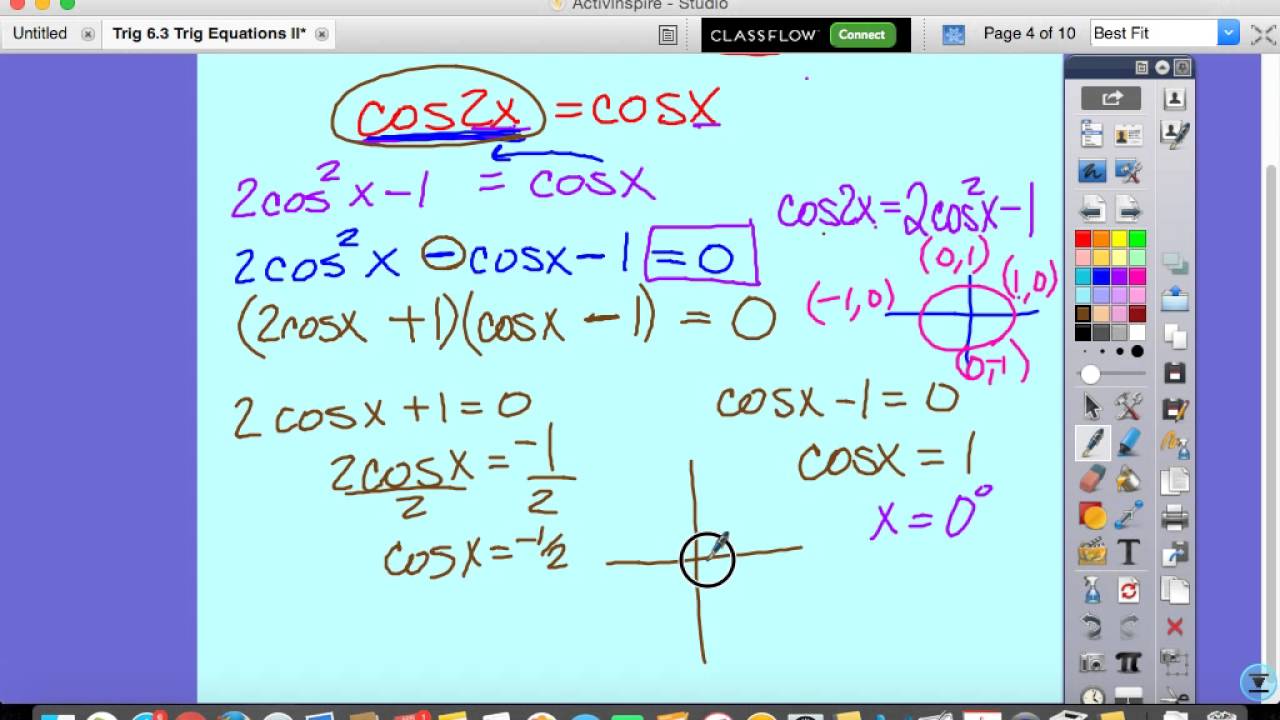 ActivInspire - Studio
Untitled
Trig 6.3 Trig Equations II*
CLASSFLOW Connect
Page 4 of 10
Best Fit
cos2x = cosx
2cos²x - 1 = cosx
cos2x = 2cos²x - 1
2cos²x - cosx - 1 = 0
(0,1)
(-1,0)
(1,0)
(0,-1)
(2cosx + 1)(cosx - 1) = 0
2cosx + 1 = 0
cosx - 1 = 0
2cosx/2 = -1/2
cosx = 1
cosx = -1/2
x = 0°